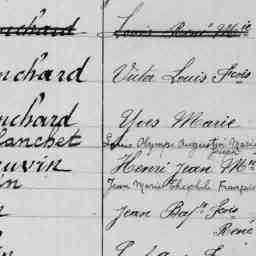 nchard Louis René Mie
nchard Victor Louis Fcois
nchard Yves Marie
lanchet Louis Olympe Augustin Marie
Joseph
uvin Henri Jean Mie
in Jean Marie Théophile François
n Jean Bapte Fcois
René